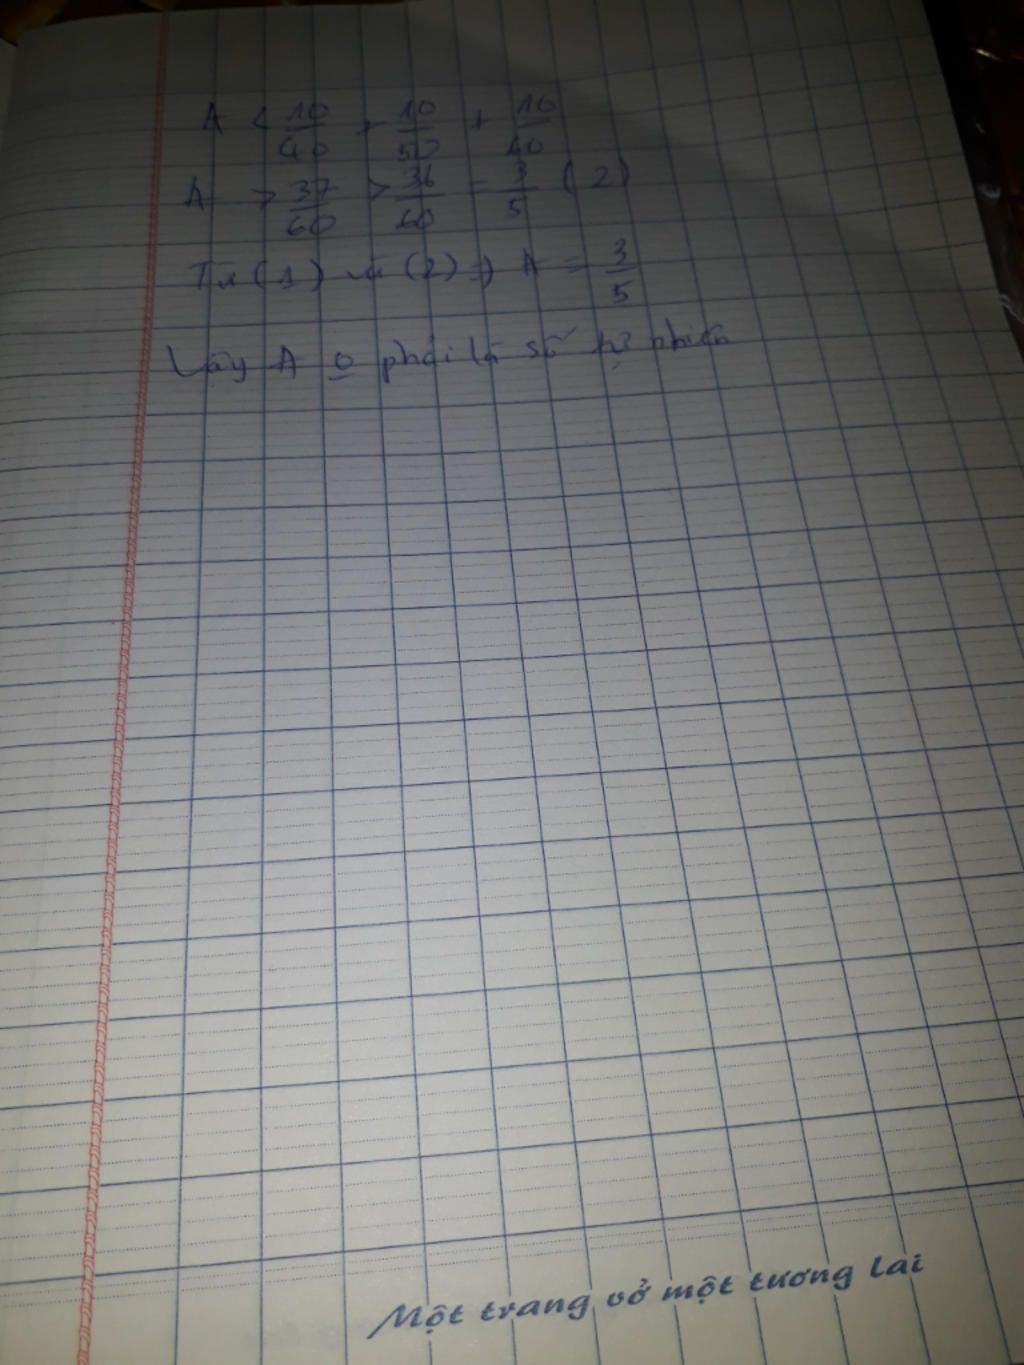 A < 10/40 + 10/50 + 10/40
A > 37/60 > 36/60 = 3/5 (2)
Từ (1) và (2) ⇒ A = 3/5
Vậy A o phải là số tự nhiên
Một trang vở một tương lai